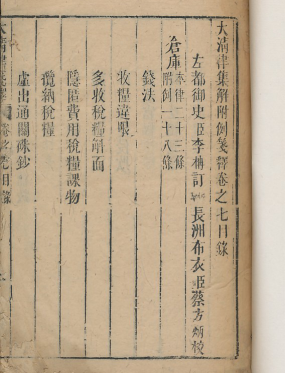 大清律集解附例箋釋卷之七目錄
左都御史臣李柟訂 長洲布衣臣蔡方炳校
倉庫 本律二十三條
附例一十八條
錢法
收糧違限
多收稅糧斛面
隱匿費用稅糧課物
攬納稅糧
虛出通關硃鈔
卷之七目錄